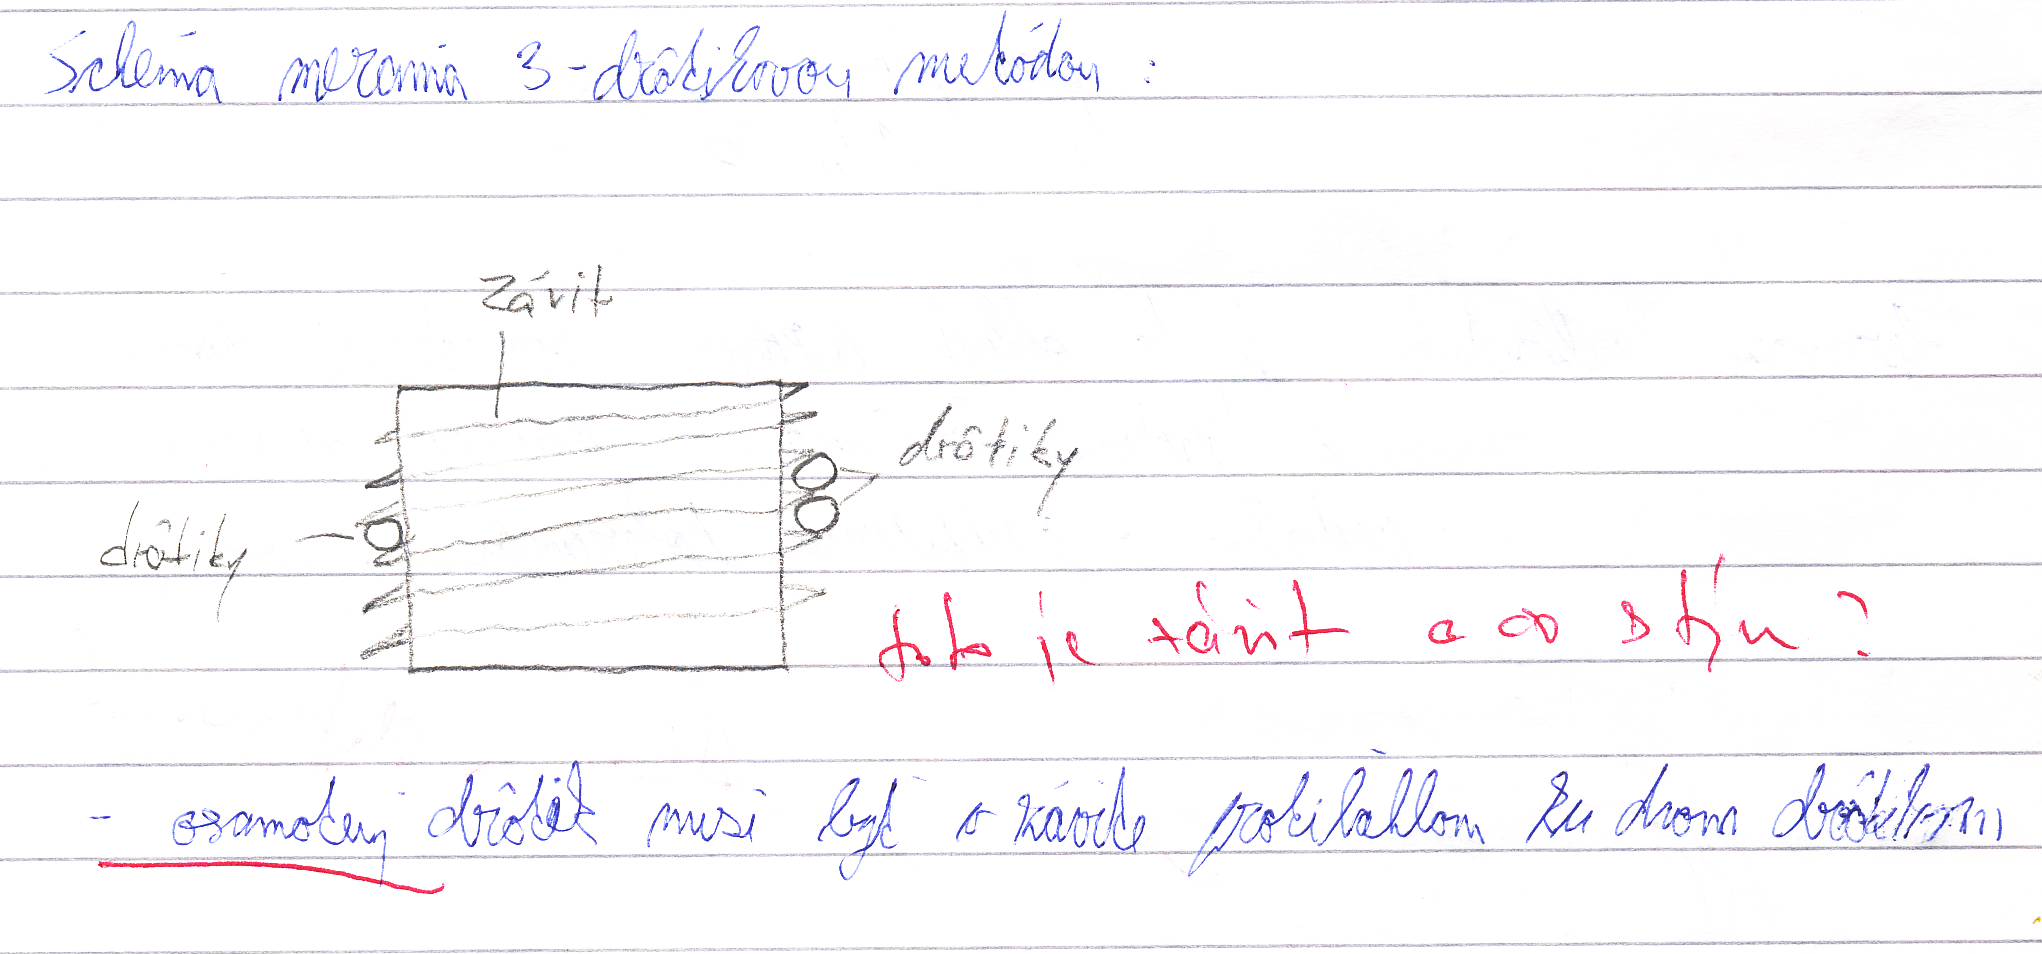 Schéma merania 3-drôtikovou metódou :
závit
drôtiky
drôtiky
toto je závit a čo s tým ?
- osamotený drôtik musí byť v závite protiľahlom ku dvom drôtikom